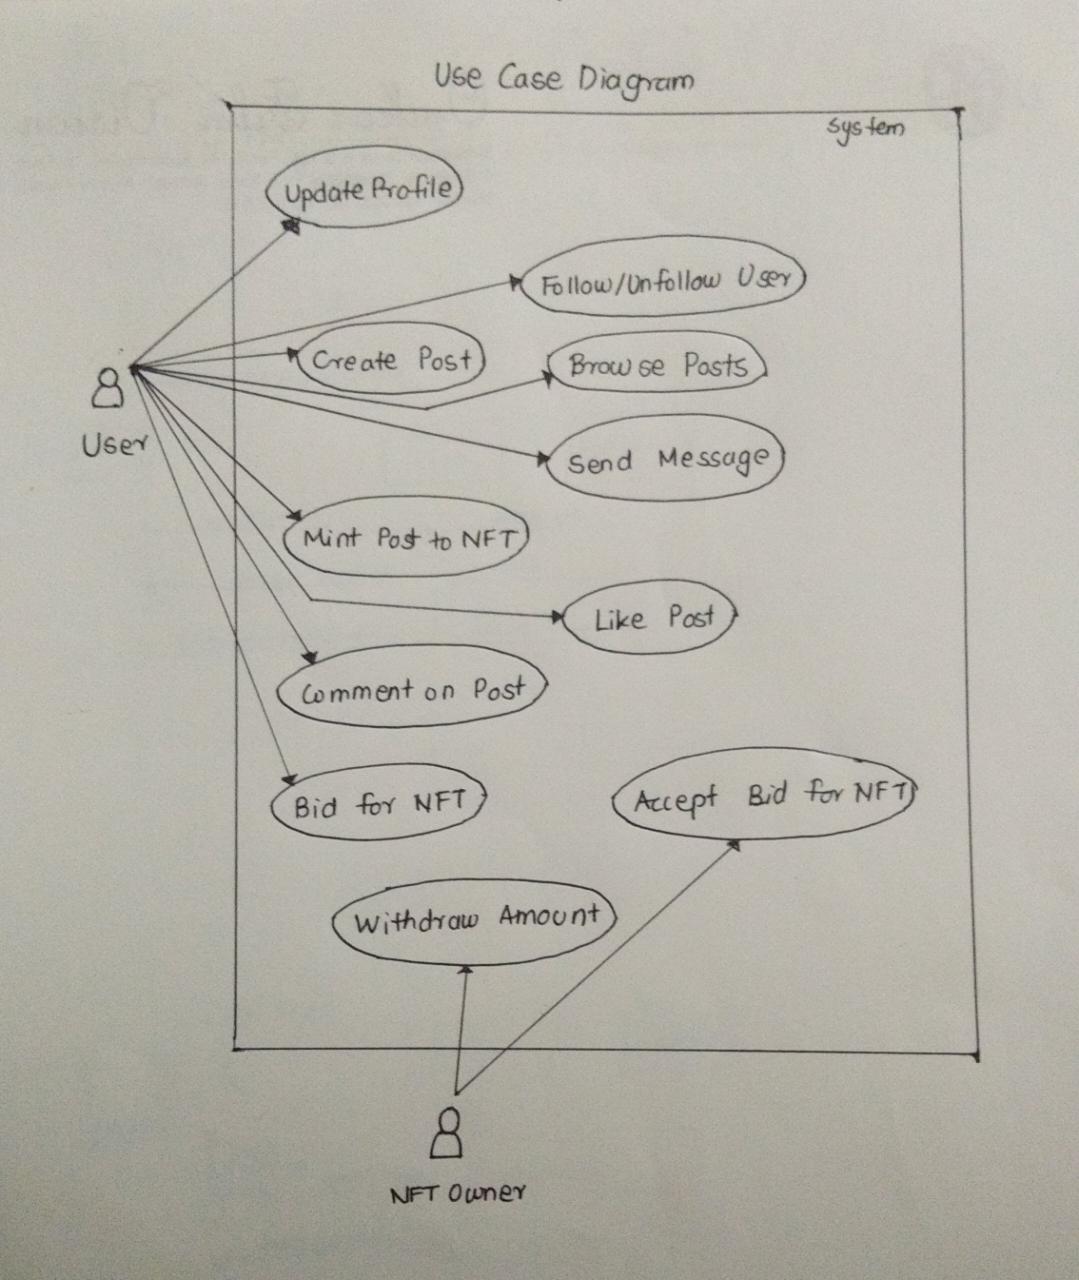 Use Case Diagram
system
Update Profile
Follow/Unfollow User
Create Post
Browse Posts
User
Send Message
Mint Post to NFT
Like Post
Comment on Post
Bid for NFT
Accept Bid for NFT
Withdraw Amount
NFT Owner